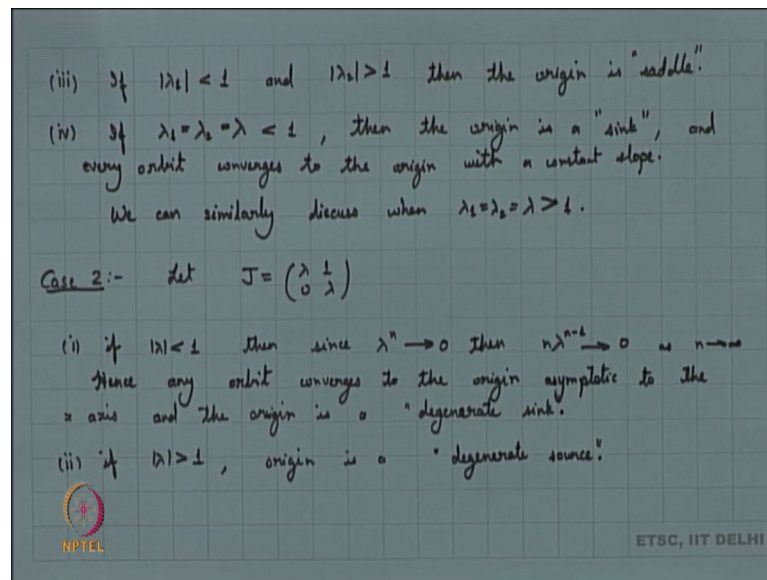 (iii) If |λ₁| < 1 and |λ₂| > 1 then the origin is "saddle".
(iv) If λ₁ = λ₂ = λ < 1, then the origin is a "sink", and
every orbit converges to the origin with a constant slope.
We can similarly discuss when λ₁ = λ₂ = λ > 1.
Case 2:- Let J = (λ 1
0 λ)
(i) if |λ| < 1 then since λⁿ → 0 then nλⁿ⁻¹ → 0 as n → ∞
Hence any orbit converges to the origin asymptotic to the
x axis and the origin is a "degenerate sink".
(ii) if |λ| > 1, origin is a "degenerate source".
NPTEL
ETSC, IIT DELHI